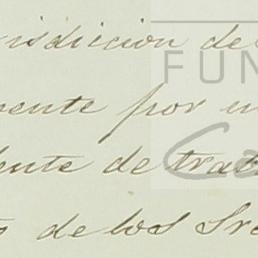 risdiccion de
FUN
mente por u
dente de trat
s de los Sre